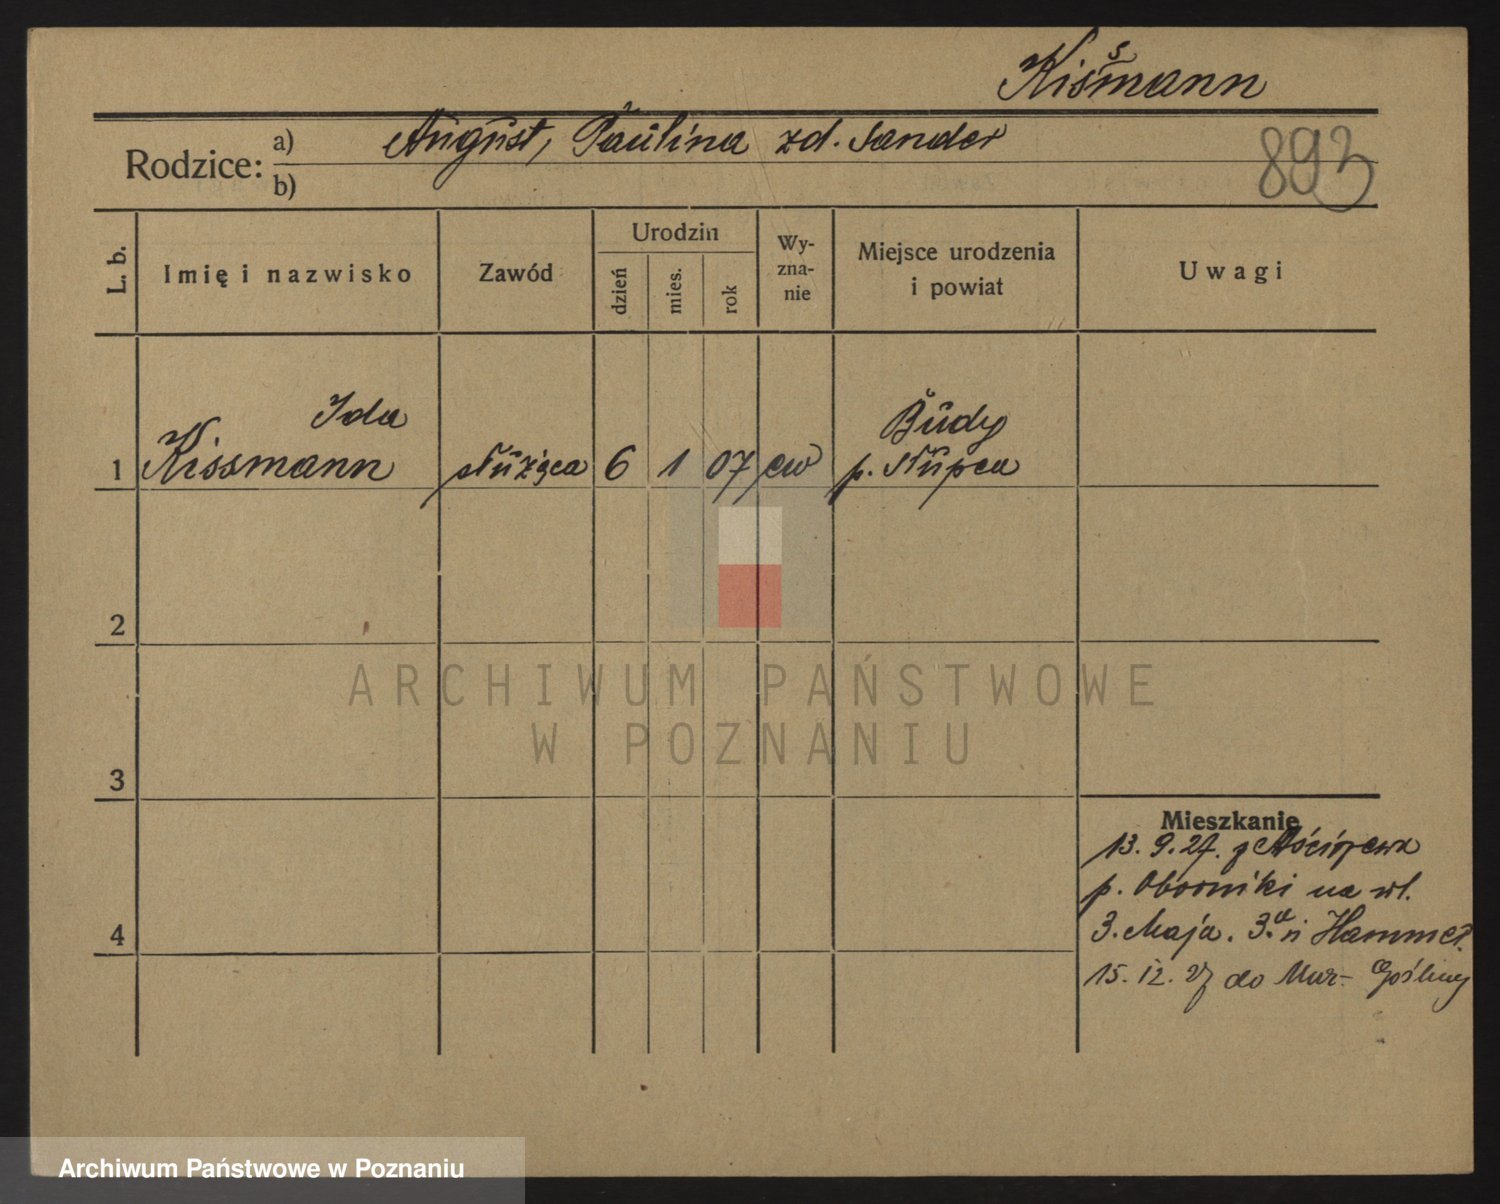 Kismann
s
August, Paulina zd. Sander
893
Rodzice: a)
b)
L. b.
Imię i nazwisko
Zawód
Urodzin
dzień
mies.
rok
Wy-
zna-
nie
Miejsce urodzenia
i powiat
Uwagi
Ida
Kissmann
1
służąca
6
1
07
ew
Budy
p. Słupca
2
3
4
Mieszkanie
13. 9. 27. z
p. Oborniki na ul.
3. Maja. 3.a Hammer.
15. 12. 27 do Mur- Gośliny
ARCHIWUM PAŃSTWOWE
W POZNANIU
Archiwum Państwowe w Poznaniu